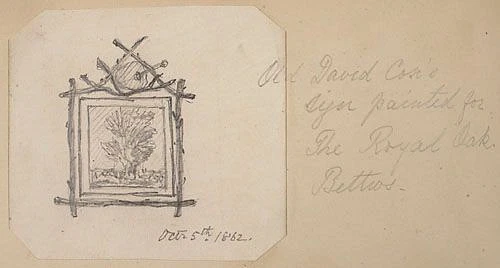 Old David Cox's
sign painted for
The Royal Oak
Bettws-
Octr. 5th. 1862.